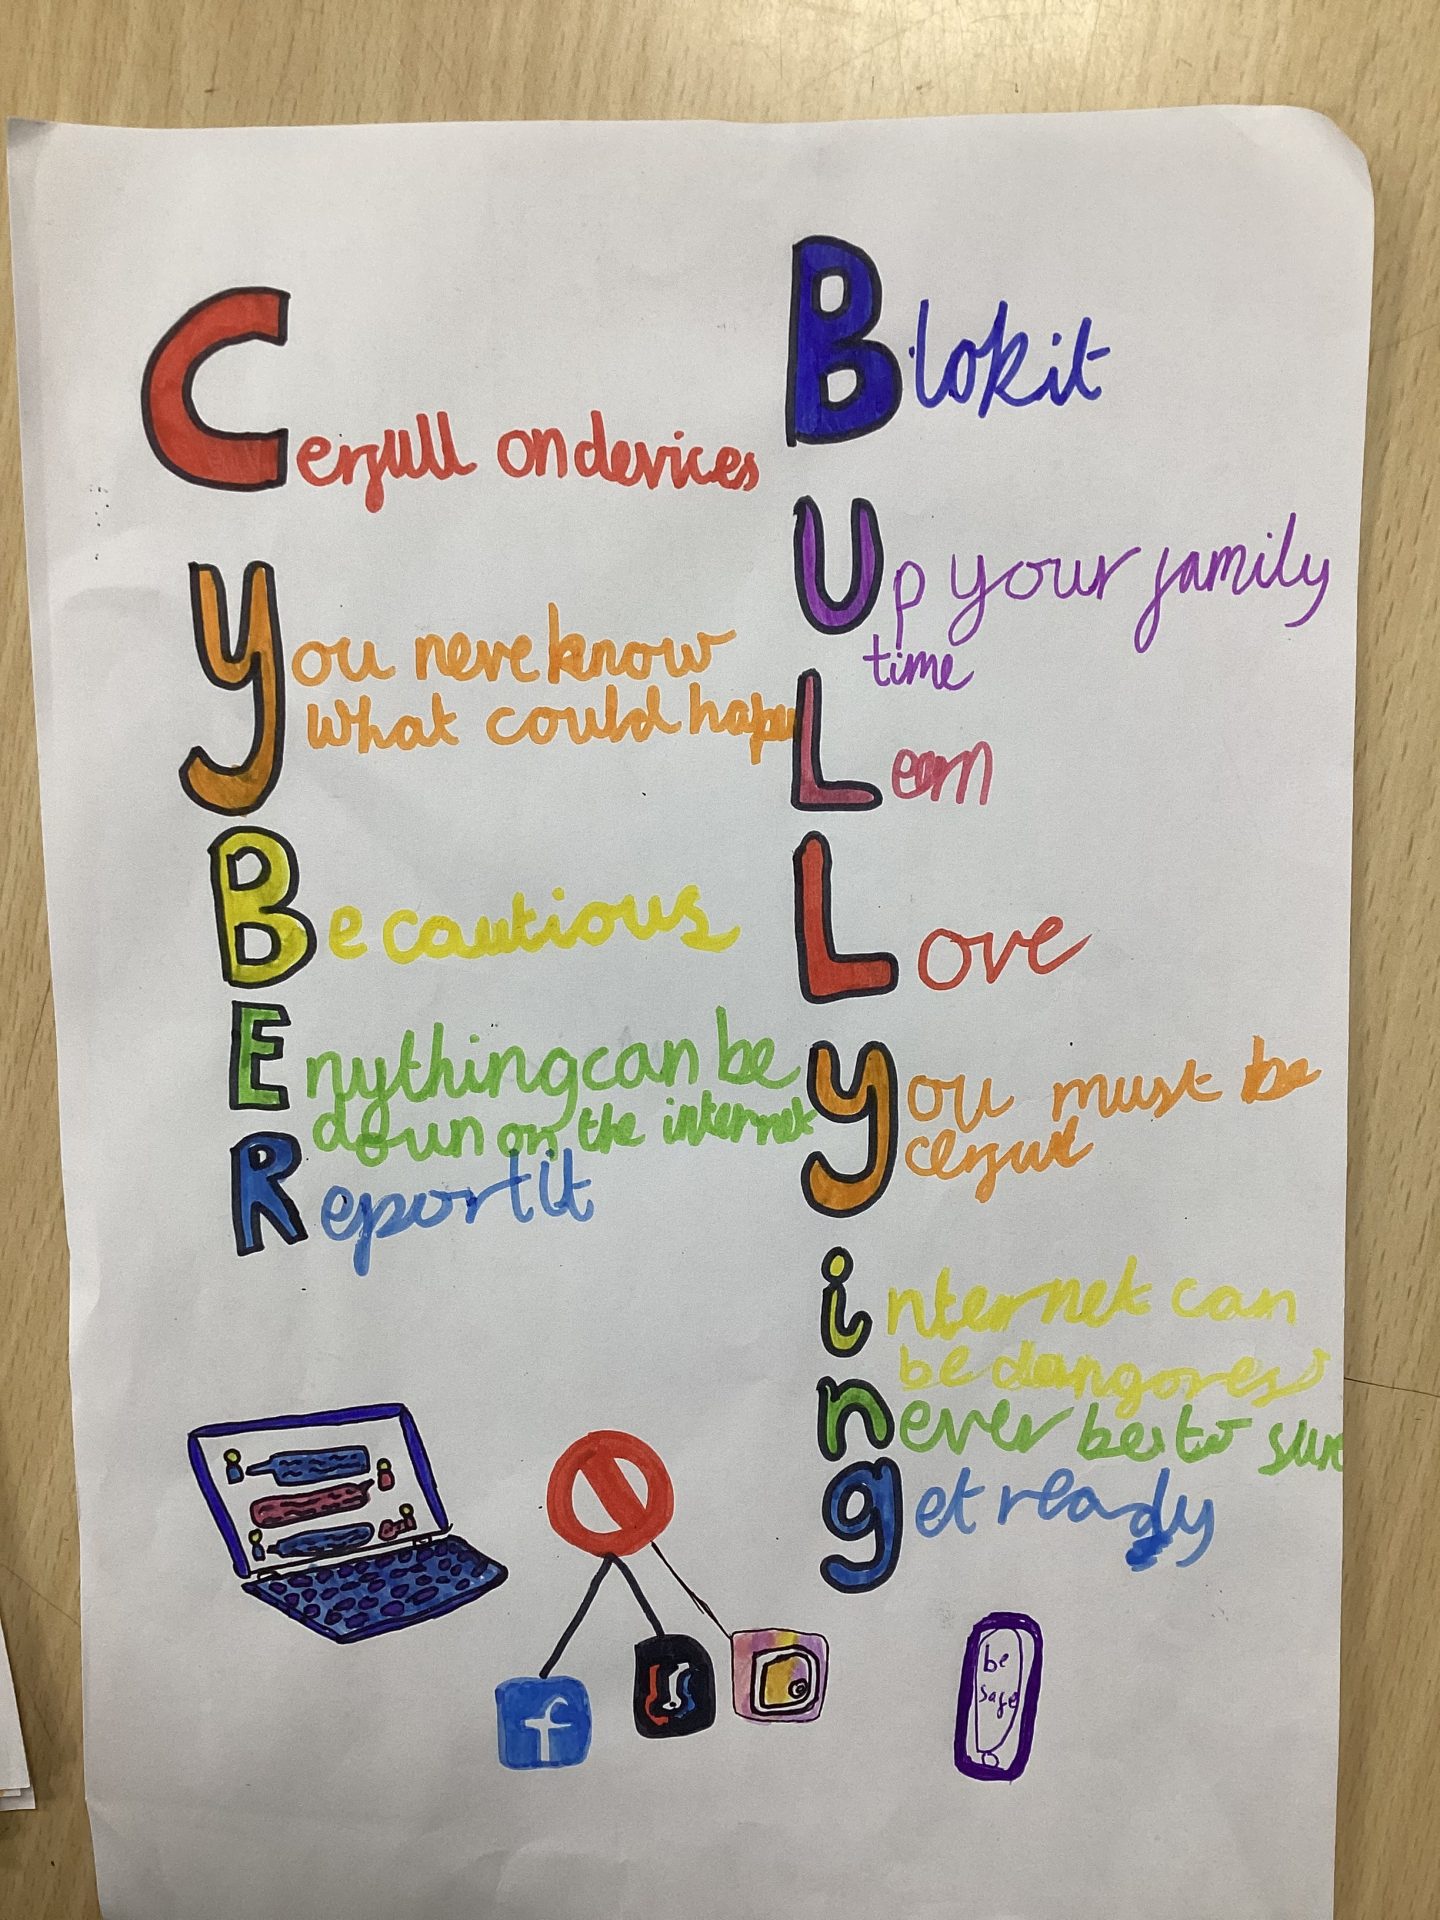 Cerfull on devices
You neve know
What could happen
Be cautious
Enything can be
down on the internet
Report it
Blok it
Up your family
time
Learn
Love
You must be
cerfull
internet can
be dangores
never be to sure
get ready
f
be
safe